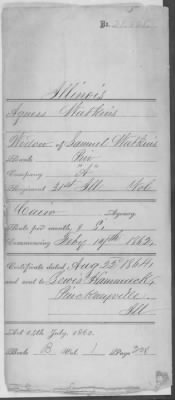 No.
Illinois
Agness Watkins
Widow of Samuel Watkins
Rank Priv
Company "A"
Regiment 31st Ill Vol.
Cairo Agency
Rate per month, $ 8
Commencing Feby 19th 1862.
Certificate dated Aug 25th 1864,
and sent to Lewis Hammack,
Pinckneyville,
Ill
Act 14th July, 1862.
Book B Vol. 1 Page 228